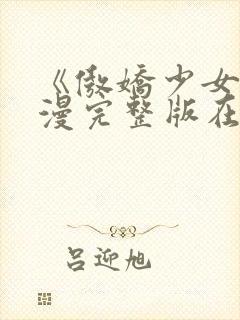 《傲娇少女
漫完整版在
吕迎旭